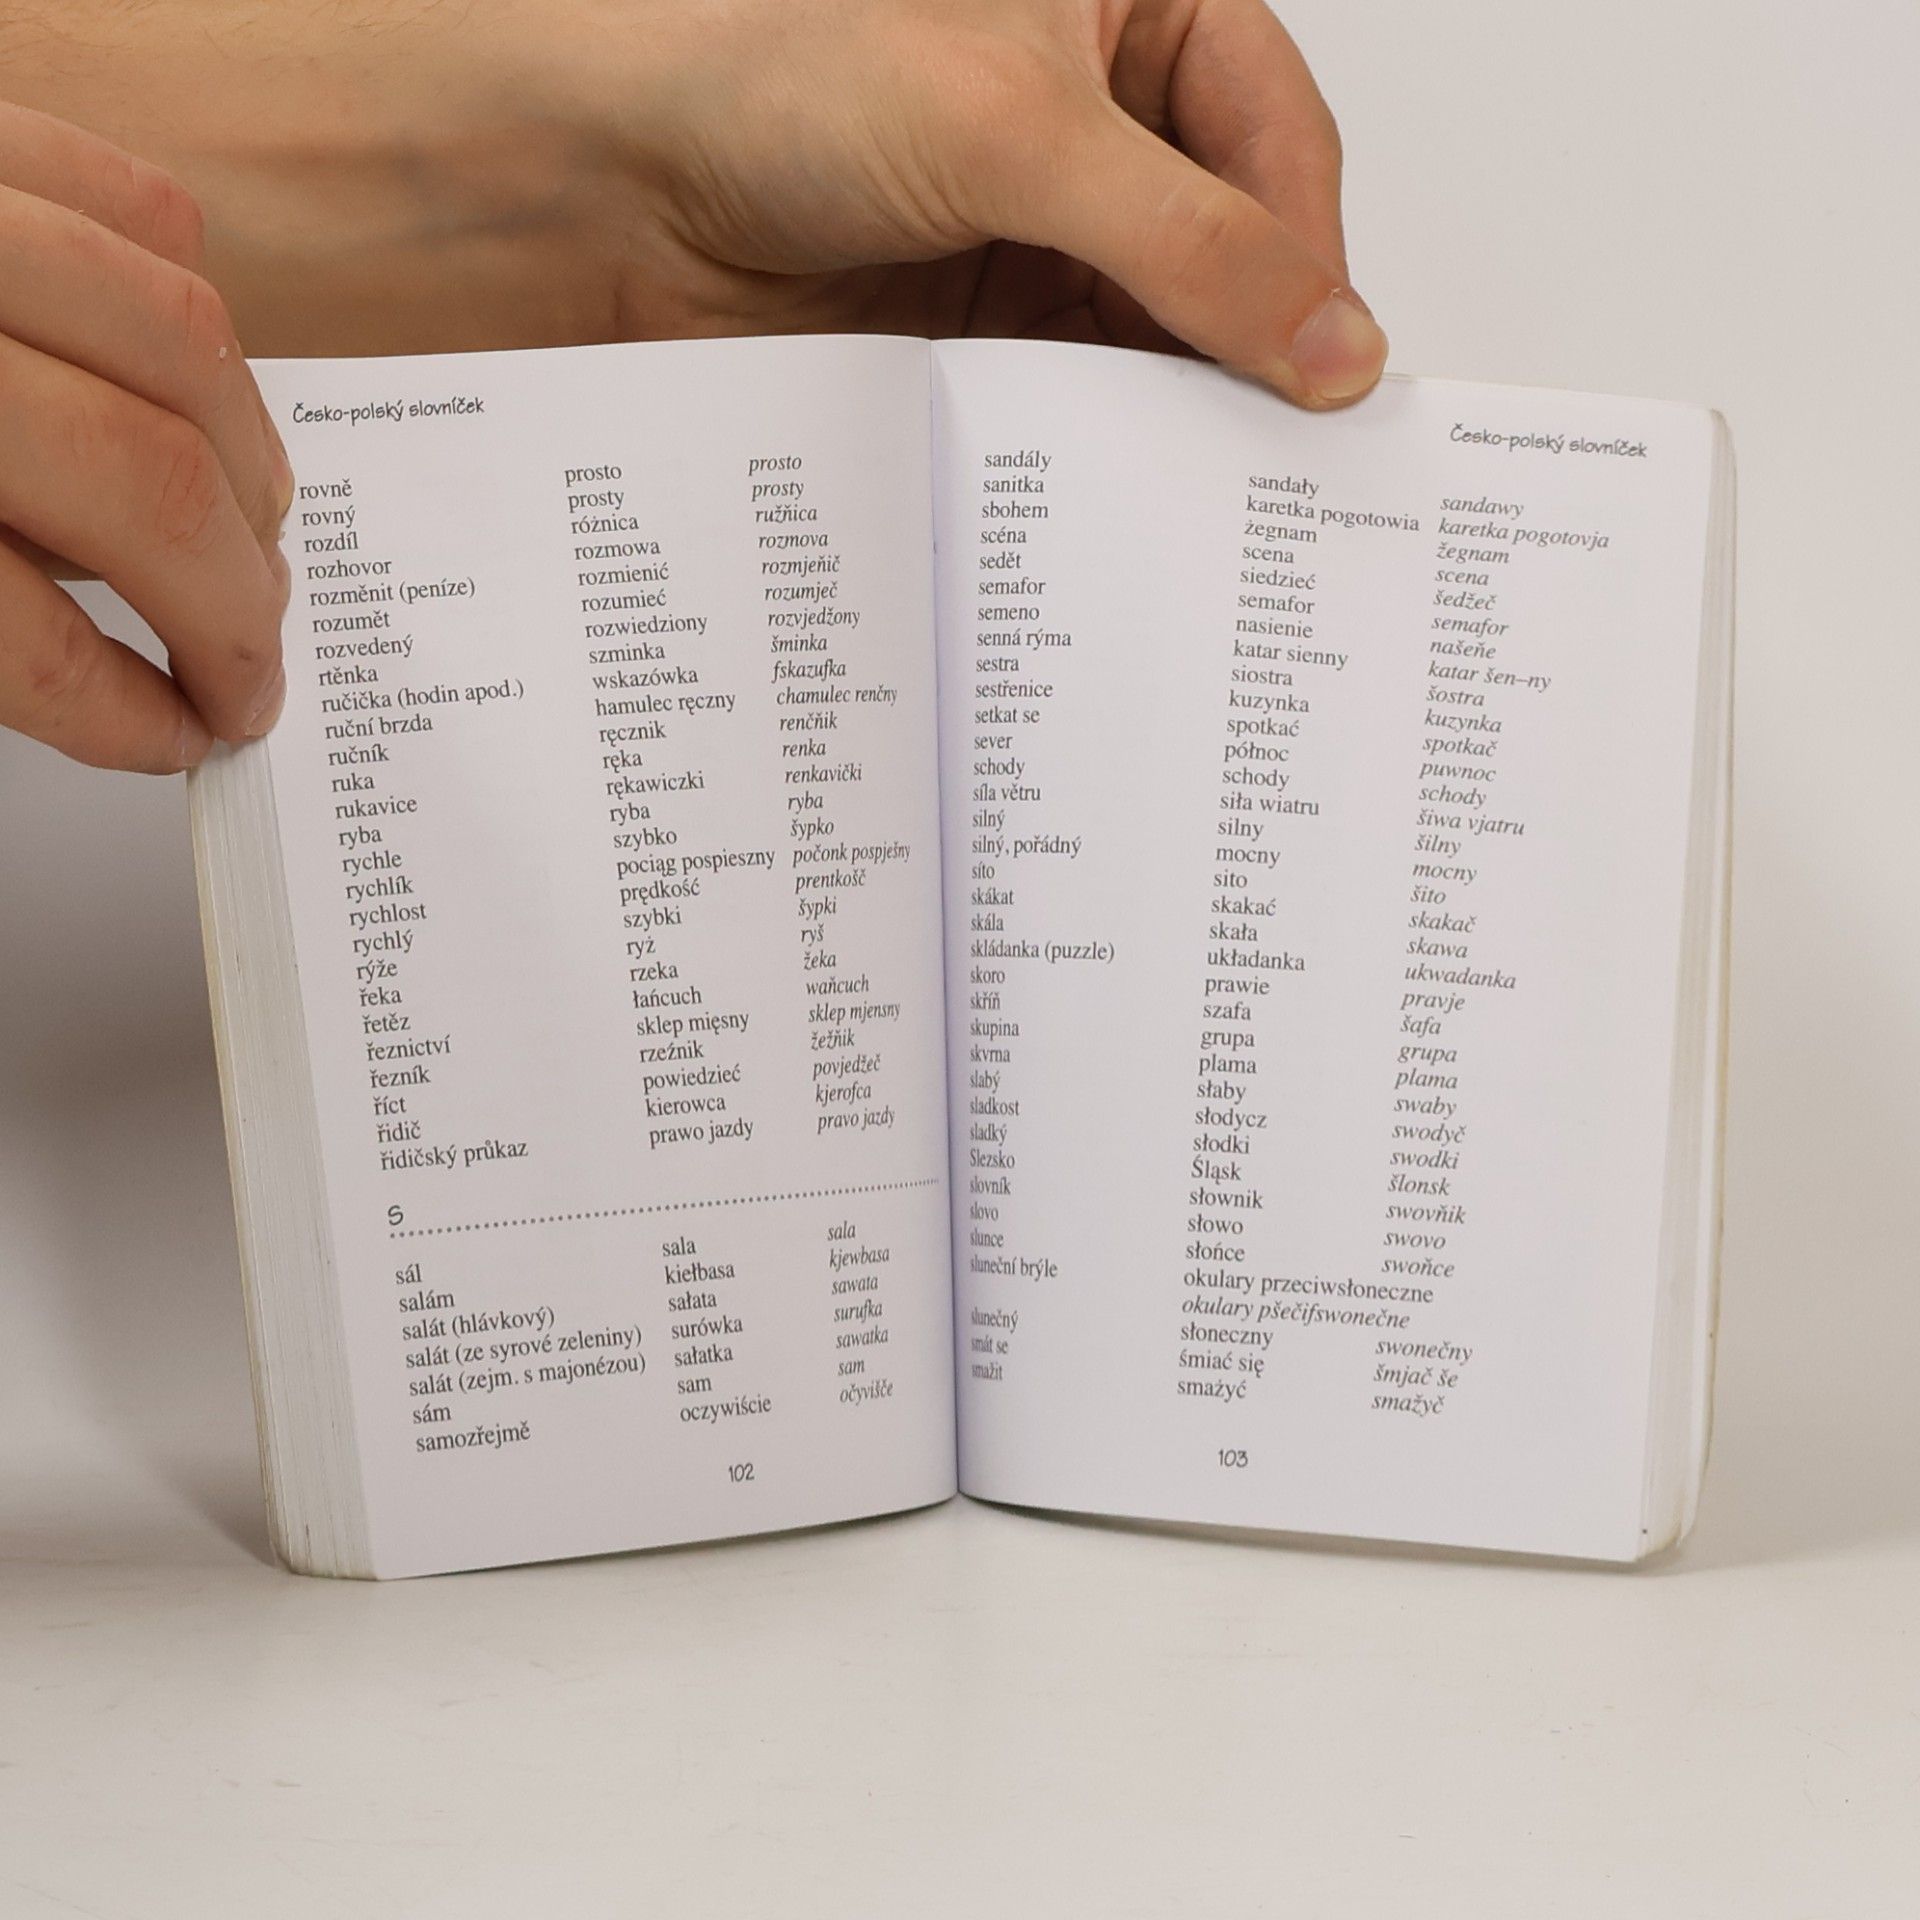 Česko-polský slovníček
rovně prosto prosto
rovný prosty prosty
rozdíl różnica ružňica
rozhovor rozmowa rozmova
rozměnit (peníze) rozmienić rozmjeňič
rozumět rozumieć rozumječ
rozvedený rozwiedziony rozvjedžony
rtěnka szminka šminka
ručička (hodin apod.) wskazówka fskazufka
ruční brzda hamulec ręczny chamulec renčny
ručník ręcznik renčňik
ruka ręka renka
rukavice rękawiczki renkavički
ryba ryba ryba
rychle szybko šypko
rychlík pociąg pospieszny počonk pospješny
rychlost prędkość prentkošč
rychlý szybki šypki
rýže ryż ryš
řeka rzeka žeka
řetěz łańcuch waňcuch
řeznictví sklep mięsny sklep mjensny
řezník rzeźnik žežňik
říct powiedzieć povjedžeč
řidič kierowca kjerofca
řidičský průkaz prawo jazdy pravo jazdy
S
sál sala sala
salám kiełbasa kjewbasa
salát (hlávkový) sałata sawata
salát (ze syrové zeleniny) surówka surufka
salát (zejm. s majonézou) sałatka sawatka
sám sam sam
samozřejmě oczywiście očyvišče
102
Česko-polský slovníček
sandály sandały sandawy
sanitka karetka pogotowia karetka pogotovja
sbohem żegnam žegnam
scéna scena scena
sedět siedzieć šedžeč
semafor semafor semafor
semeno nasienie našeňe
senná rýma katar sienny katar šen–ny
sestra siostra šostra
sestřenice kuzynka kuzynka
setkat se spotkać spotkač
sever północ puwnoc
schody schody schody
síla větru siła wiatru šiwa vjatru
silný silny šilny
silný, pořádný mocny mocny
síto sito šito
skákat skakać skakač
skála skała skawa
skládanka (puzzle) układanka ukwadanka
skoro prawie pravje
skříň szafa šafa
skupina grupa grupa
skvrna plama plama
slabý słaby swaby
sladkost słodycz swodyč
sladký słodki swodki
Slezsko Śląsk šlonsk
slovník słownik swovňik
slovo słowo swovo
slunce słońce swoňce
sluneční brýle okulary przeciwsłoneczne
okulary pšečifswonečne
slunečný słoneczny swonečny
smát se śmiać się šmjač še
smažit smażyć smažyč
103